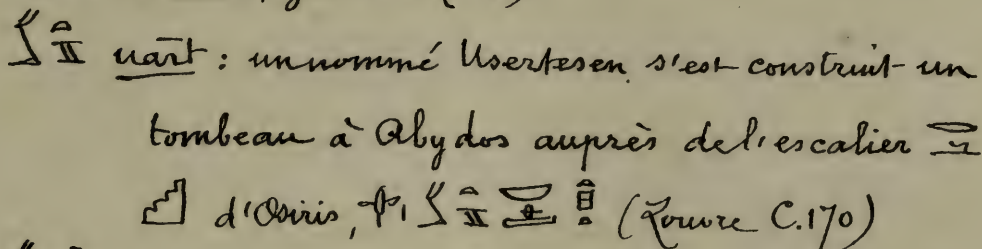 uārt : un nommé Usertesen s'est construit un
tombeau à Abydos auprès de l'escalier
d'Osiris, (Louvre C.170)